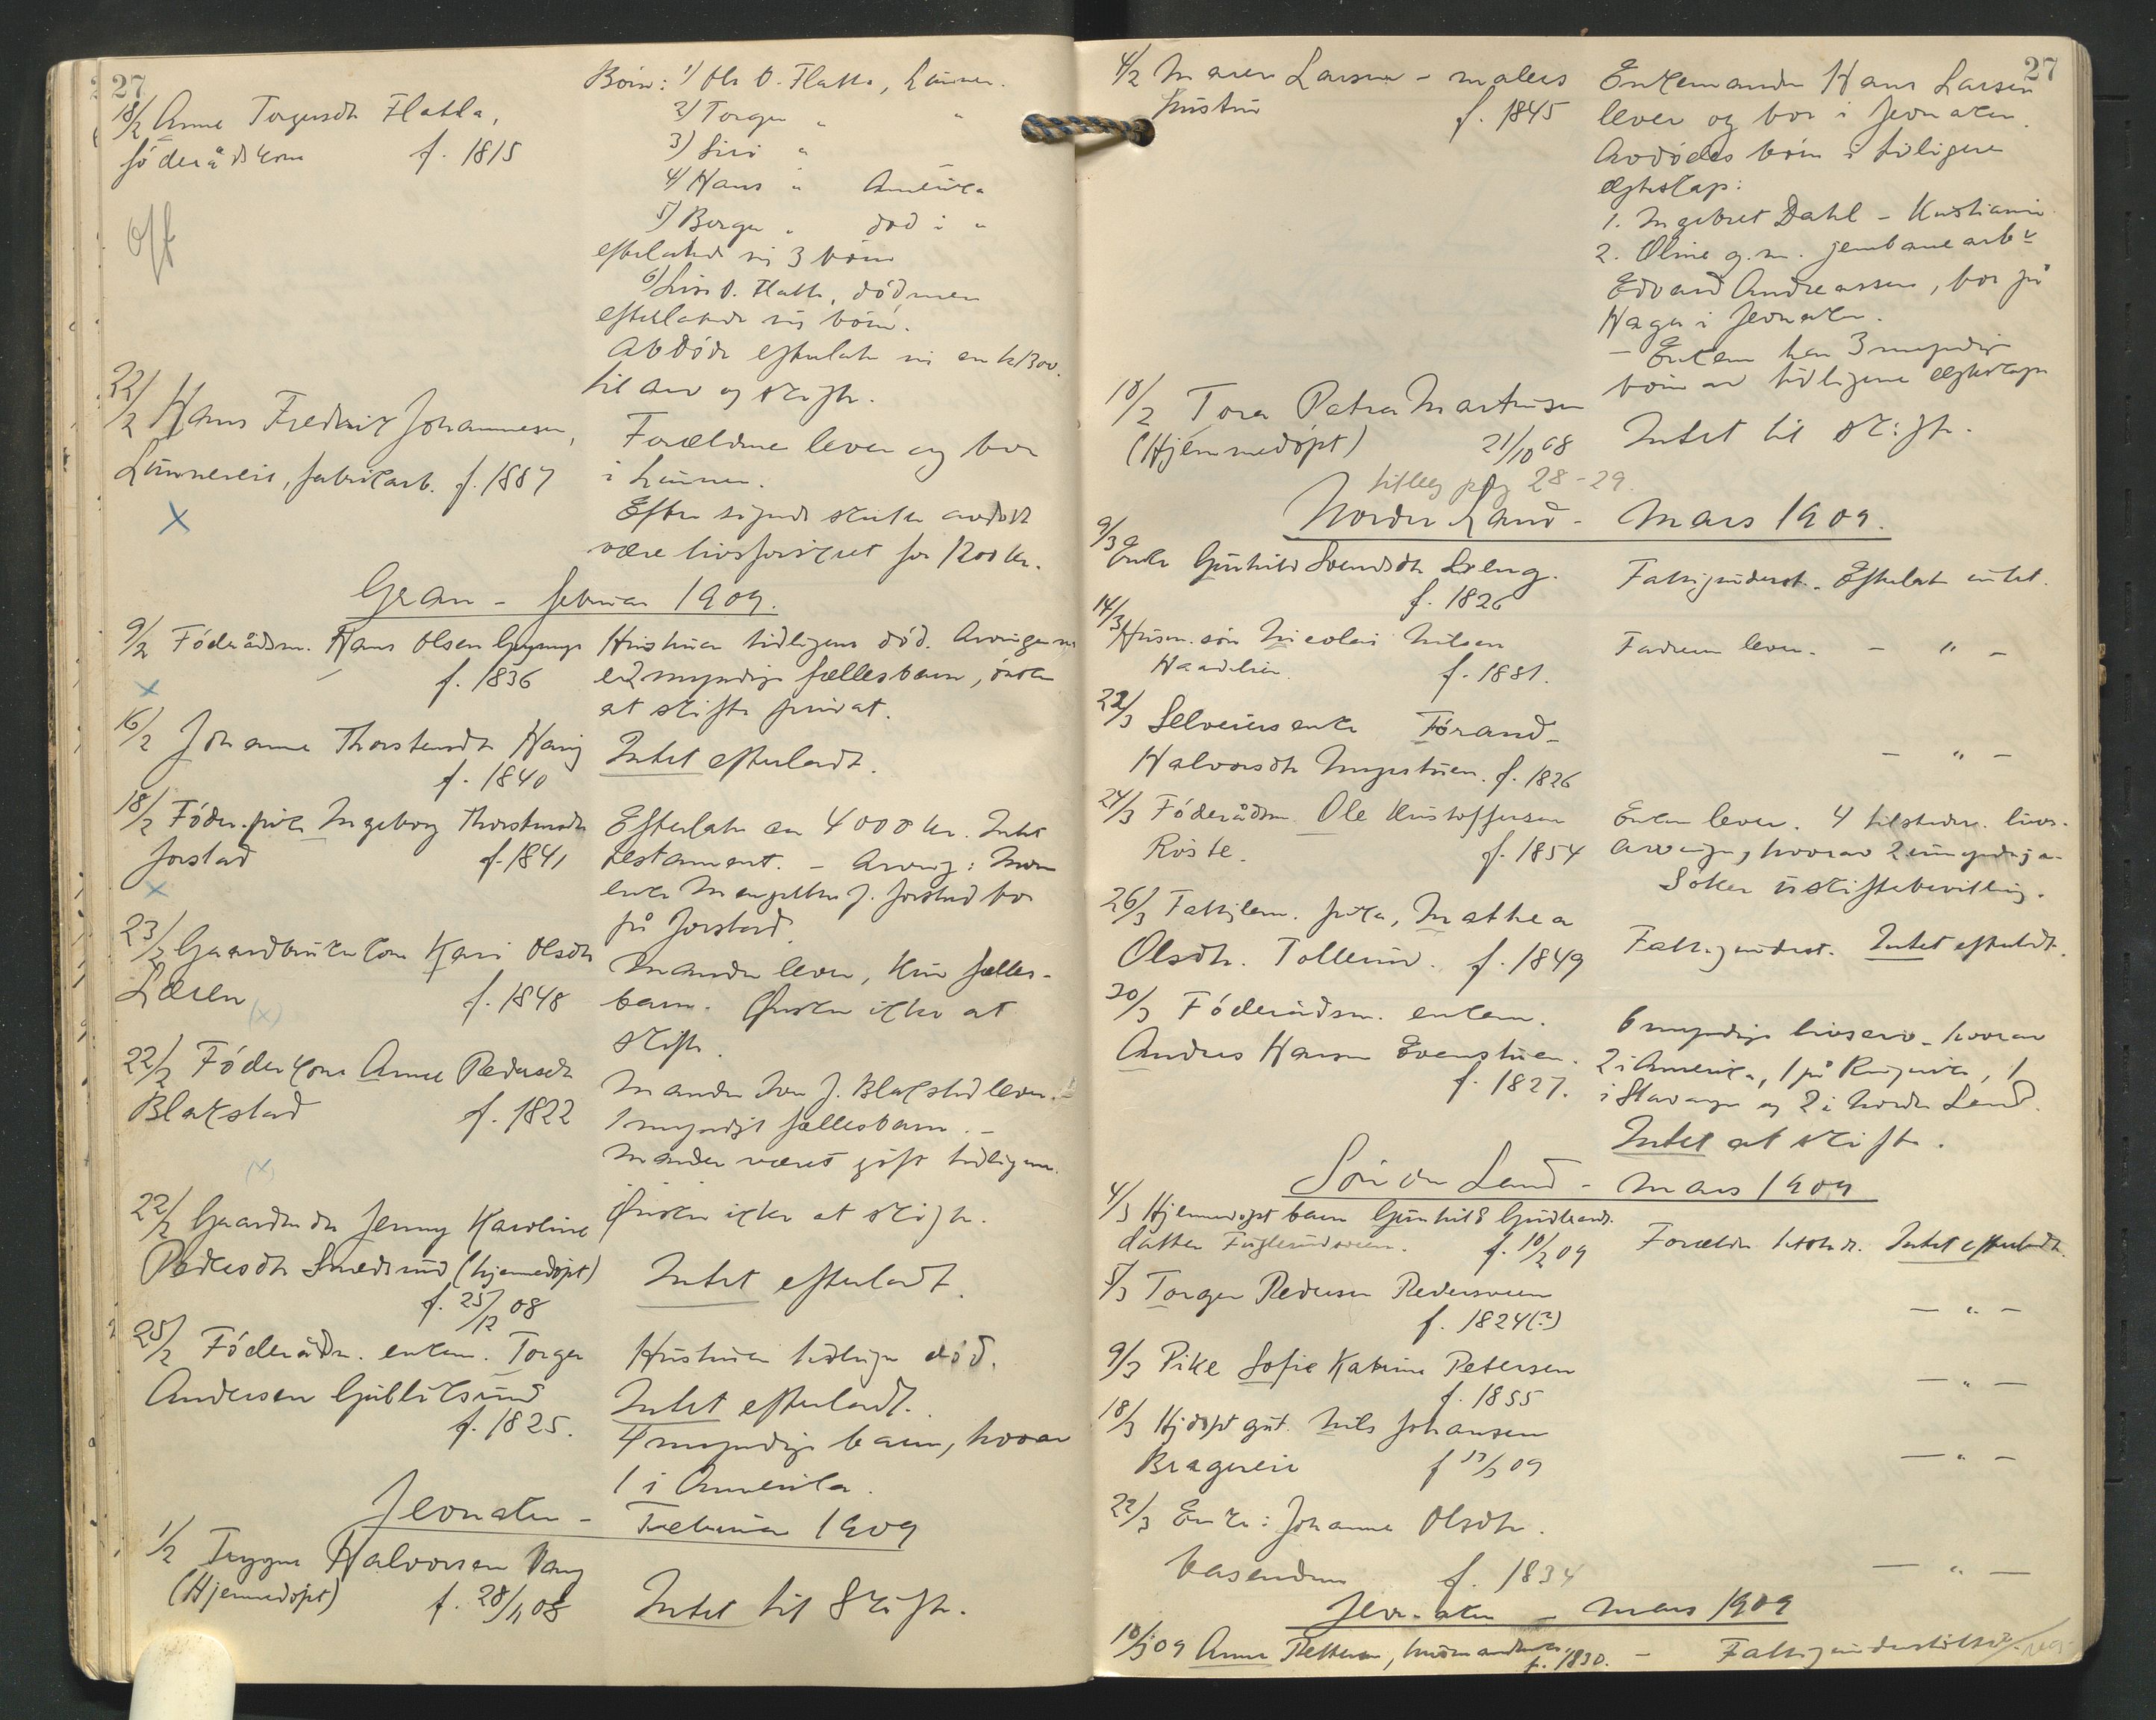 27
18/2 Anne Torgersdtr Flatla,
föderådskone f. 1815
Off
Börn: 1) Ole O. Flatla, Lunner.
2) Torger " "
3) Siri "
4) Hans " Amerika
5) Borger " död i "
efterlatende sig 3 börn
6) O. Flatla, död men
efterlatende sig börn.
Avdöde efterlater sig en kr 1300.
til arv og skifte.
22/2 Hans Fredrik Johannesen,
Lunnereie, fabrikarb. f. 1887
x
Forældrene lever og bor
i Lunner.
Efter sigende skulde avdöde
være livsforsikret for 1200 kr.
Gran - februar 1909.
9/2 Föderådsm. Hans Olsen
f. 1836
x
Hustruen tidligere död. Arvingerne
er 2 myndige fællesbarn, önsker
at skifte privat.
16/2 Johanne Thorstensdtr Haug
f. 1840
Intet efterladt.
18/2 Föder.pike Ingeborg Thorstensdtr
Jorstad f. 1841
x
Efterlater ca 4000 kr. Intet
testament. - Arving: Mor
enke J. Jorstad bor
på Jorstad.
23/2 Gaardbrukerkone Kari Olsdtr
Læren f. 1848
(x)
Manden lever, kun fælles-
barn. Önsker ikke at
skifte.
22/2 Föderkone Anne Pedersdtr
Blakstad f. 1822
(x)
Manden Iver J. Blakstad lever.
1 myndigt fællesbarn. -
Manden været gift tidligere.
Önsker ikke at skifte.
22/2 Gaardm. dtr Jenny Karoline
Pedersdtr Smedsrud (hjemmedöpt)
f. 25/12 08
Intet efterladt.
25/2 Föderådsm. enkem. Torger
Andersen Gulliksrud
f. 1825.
Hustruen tidligere död.
Intet efterladt.
4 myndige barn, hvorav
1 i Amerika.
Jevnaker - Februar 1909
1/2 Trygve Halvorsen Vang
(Hjemmedöpt) f. 28/11 08
Intet til Skifte.
27
4/2 Maren Larsen - malers
hustru f. 1845
Enkemanden Hans Larsen
lever og bor i Jevnaker.
Avdödes börn i tidligere
ægteskap:
1. Ingebret Dahl - Kristiania
2. Oline g.m. jernbanearbr
Edvard Andreassen, bor på
Haga i Jevnaker.
- Enkem. har 3 myndige
börn av tidligere ægteskap
10/2 Tora Petra Martinsen
(Hjemmedöpt) 21/10 08
Intet til skifte.
tillæg pag 28-29.
Nordre Land - Mars 1909.
9/3 Enke Gunhild Svendsdtr Sveng.
f. 1826
Fattigunderst. Efterlot intet.
14/3 Husm. sön Nicolai Nilsen
f. 1881.
Faderen lever. - " -
22/3 Selveiersenke Torand
Halvorsdtr Myrstuen. f. 1826
- " -
24/3 Föderådsm Ole Kristoffersen
Röste. f. 1854
Enken lever. 4 tilstedev. livs-
arvinger, hvorav 2 umyndige.
Söker uskiftebevilling.
26/3 Fattiglem. pike, Mathea
Olsdtr. Tollerud. f. 1849
Fattigunderst. Intet efterladt.
30/3 Föderådsm. enkem.
Anders Hansen Evenstuen.
f. 1827.
6 myndige livsarv. hvorav
2 i Amerika, 1 på Ringerike, 1
i Stavanger og 2 i Nordre Land.
Intet at skifte.
Söndre Land - Mars 1909
4/3 Hjemmedöpt barn Gunhild Gudbrands-
datter f. 10/2 09
Forældre tilstede. Intet efterladt.
5/3 Torger Pedersen Pedersveen
f. 1824(?)
- " -
9/3 Pike Sofie Katrine Petersen
f. 1855
- " -
18/3 Hjdöpt gut. Nils Johansen
Bragereie f 09
- " -
22/3 Enke: Johanne Olsdtr.
Vasenden f. 1834
- " -
Jevnaker - Mars 1909
10/3 09 Anne Pettersen,
f. 1830. - Fattigunderstöttet